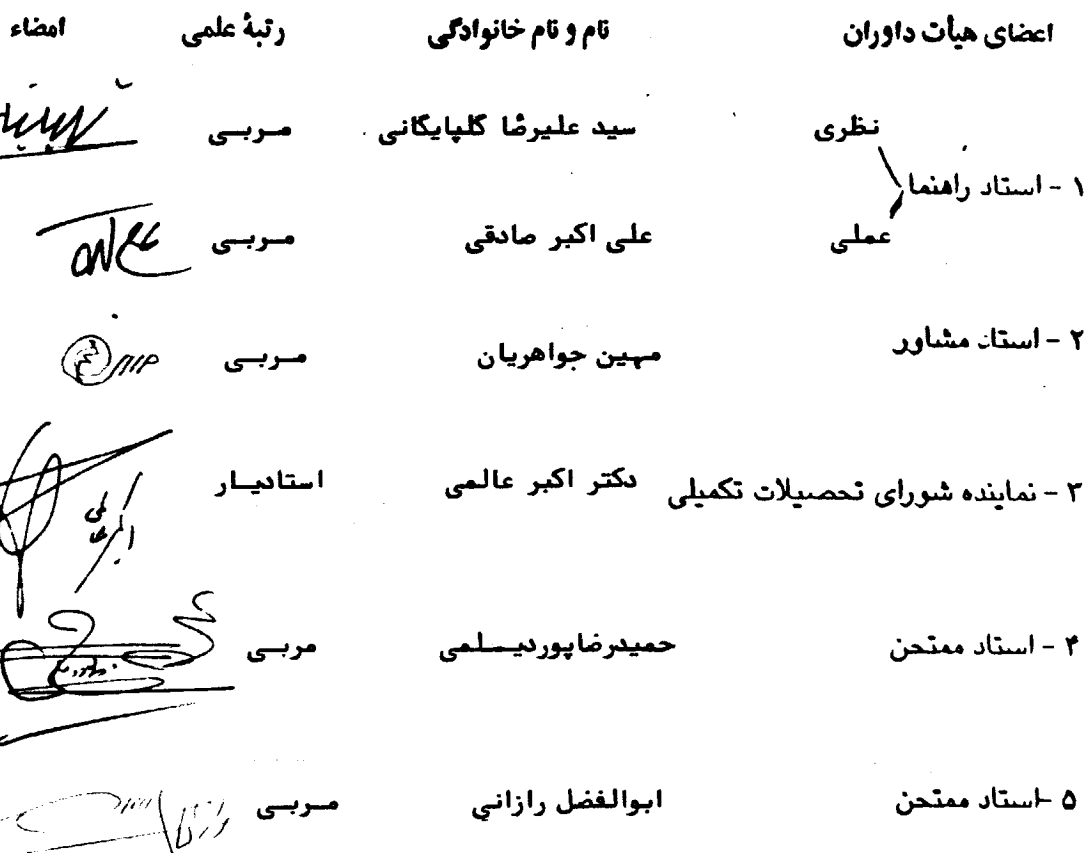 اعضای هیأت داوران نام و نام خانوادگی رتبهٔ علمی امضاء
نظری سید علیرضا گلپایگانی مربی
۱ - استاد راهنما
عملی علی اکبر صادقی مربی
۲ - استاد مشاور مهین جواهریان مربی
۳ - نماینده شورای تحصیلات تکمیلی دکتر اکبر عالمی استادیار
۴ - استاد ممتحن حمیدرضاپوردیسلمی مربی
۵ - استاد ممتحن ابوالفضل رازانی مربی